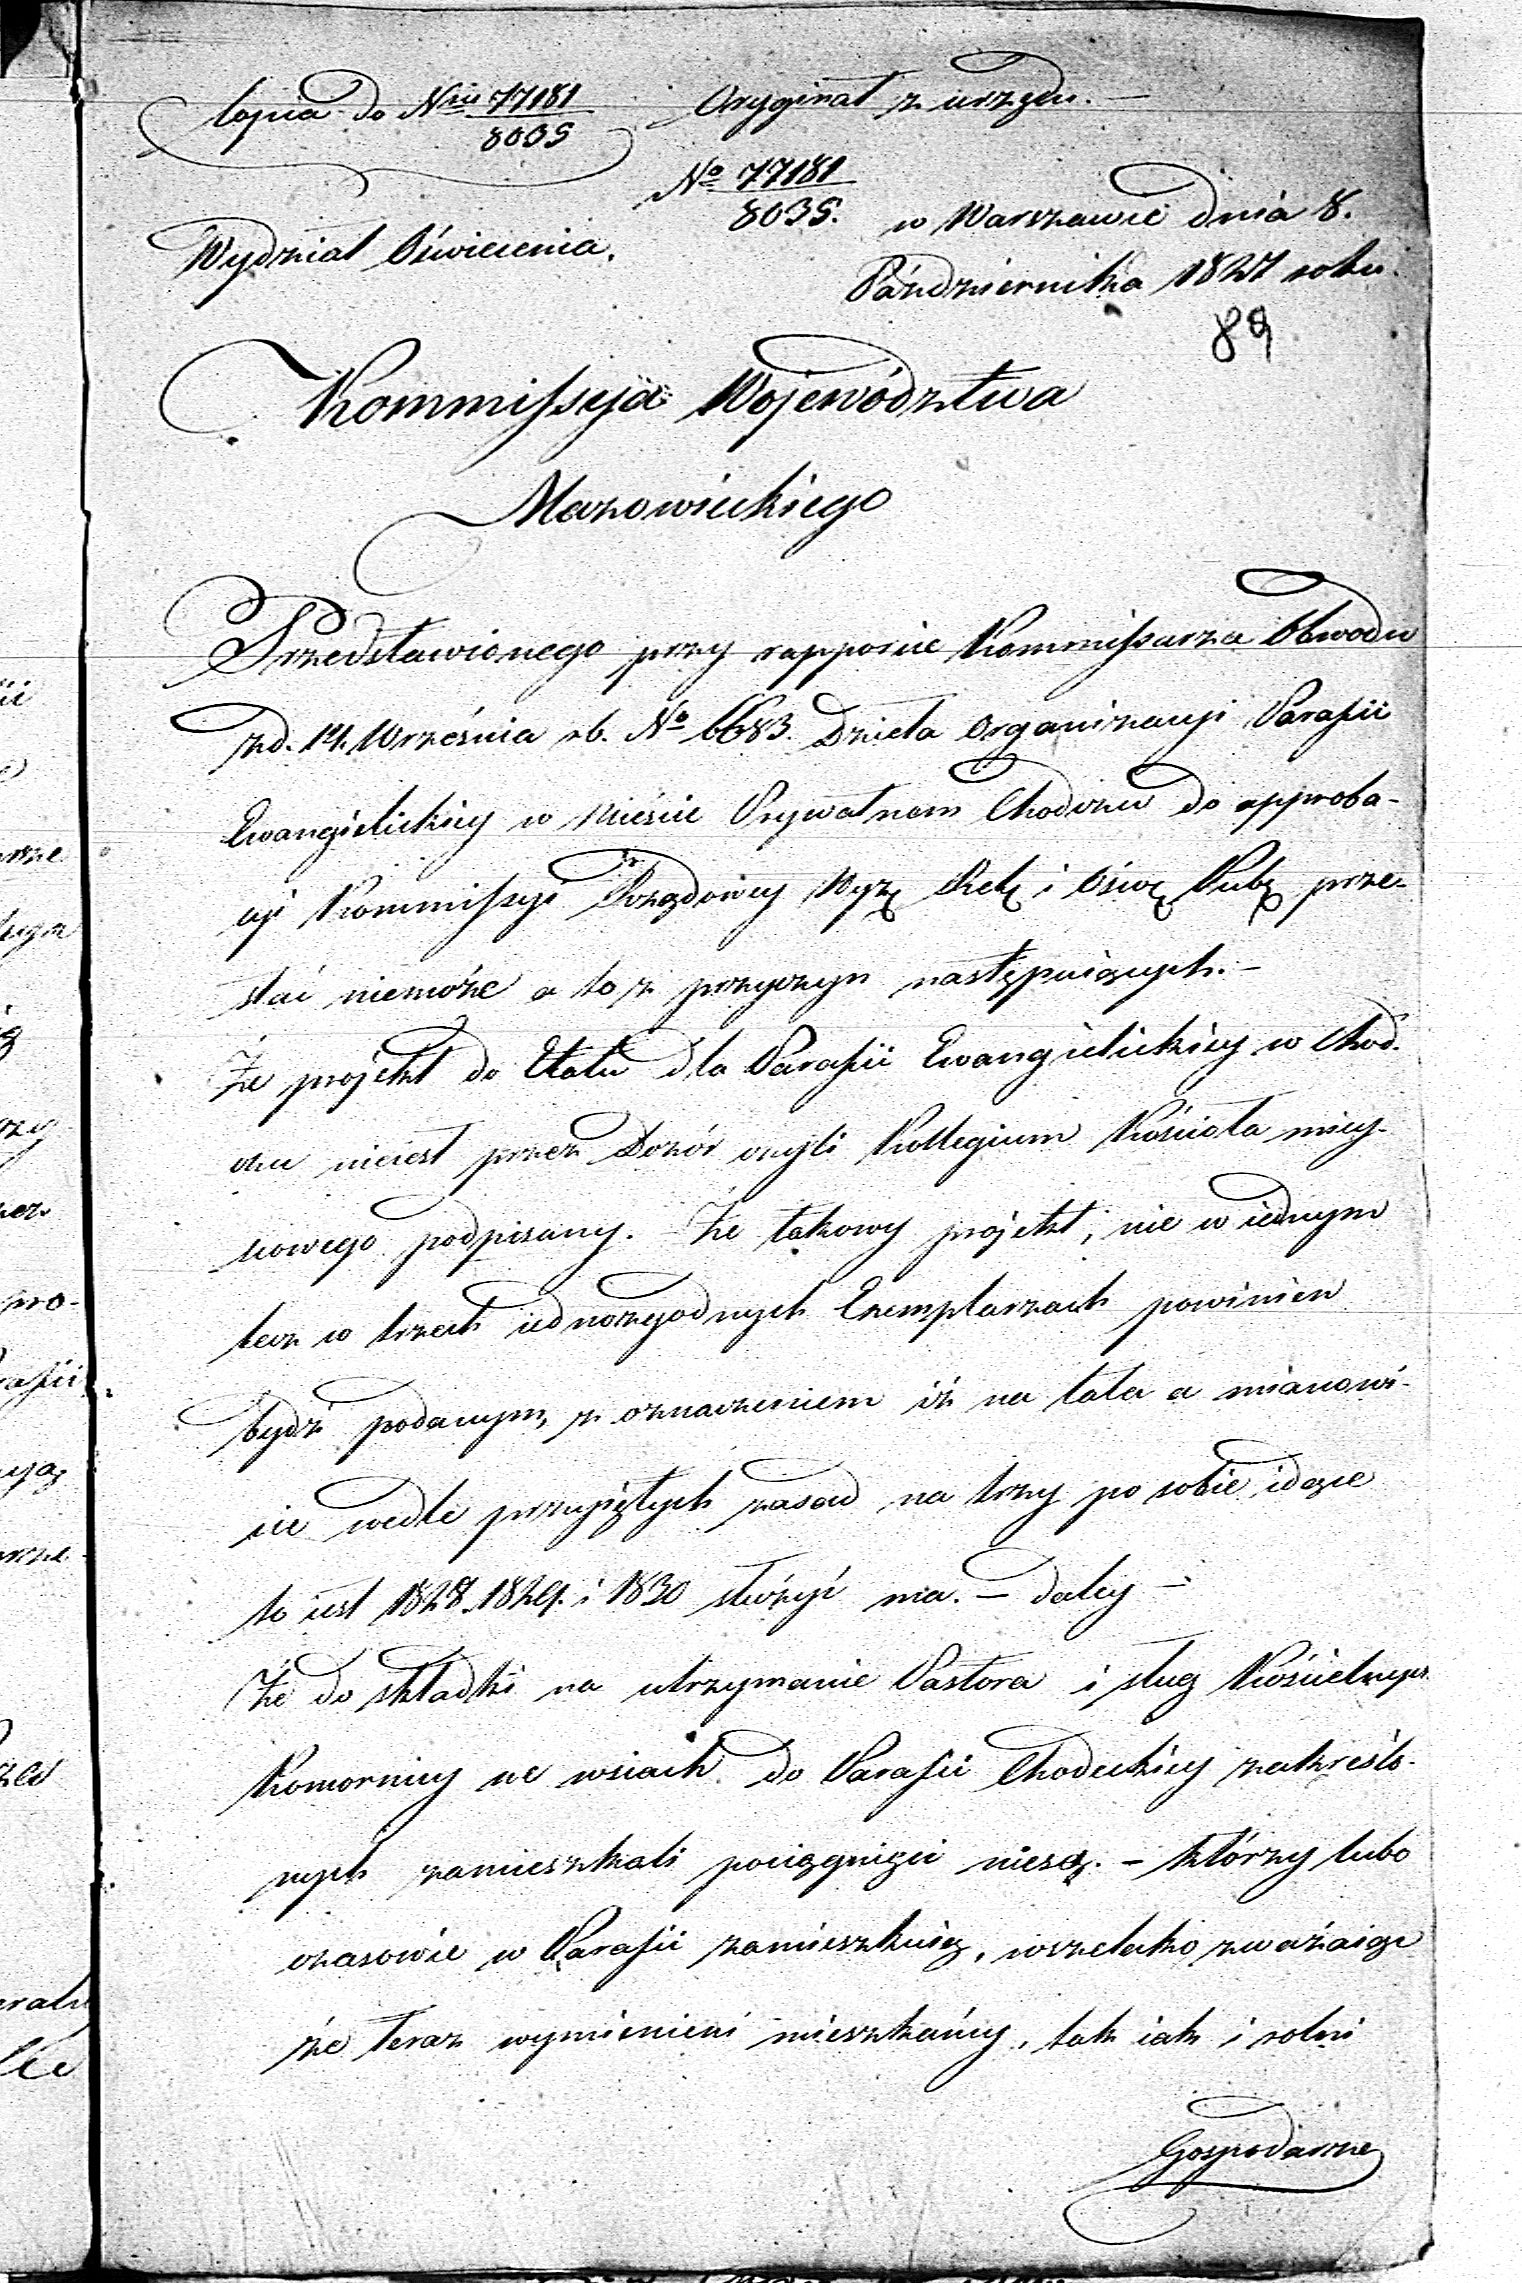 Copia do Nru 77181/8035
Oryginał z urzędu. —
No 77181/8035.
w Warszawie dnia 8.
Wydział Oświecenia.
Października 1827 roku.
89
Kommissyia Województwa
Mazowieckiego
Przedstawionego przy rapporcie Kommissarza Obwodu
z d. 14. Września rb. No 6683. Dzieła Organizacyi Parafii
Ewangielickiey w Mieście Prywatnem Chodczu do approba-
cyi Kommissyi Rządowey Wyz. Rel. i Ośw. Pub. prze-
stać niemoże a to z przyczyn następuiących. —
Że projekt do Etatu dla Parafii Ewangielickiey w Chod-
czu nieiest przez Dozór czyli Kollegium Kościoła miey-
scowego podpisany. — Że takowy projekt, nie w iednym
lecz w trzech iednozgodnych Exemplarzach powinien
bydź podanym, z oznaczeniem iż na lata a mianowi-
cie wedle przyiętych zasad na trzy po sobie idące
to iest 1828. 1829. i 1830 służyć ma. — daley —
Że do składki na utrzymanie Pastora i sług Kościelnych
Komornicy we wsiach do Parafii Chodeckiey zakreślo-
nych zamieszkali pociągnięci niesą. — którzy lubo
czasowie w Parafii zamieszkuią, wszelako zważaiąc
że teraz wymienieni mieszkańcy, tak iak i rolni
Gospodarze